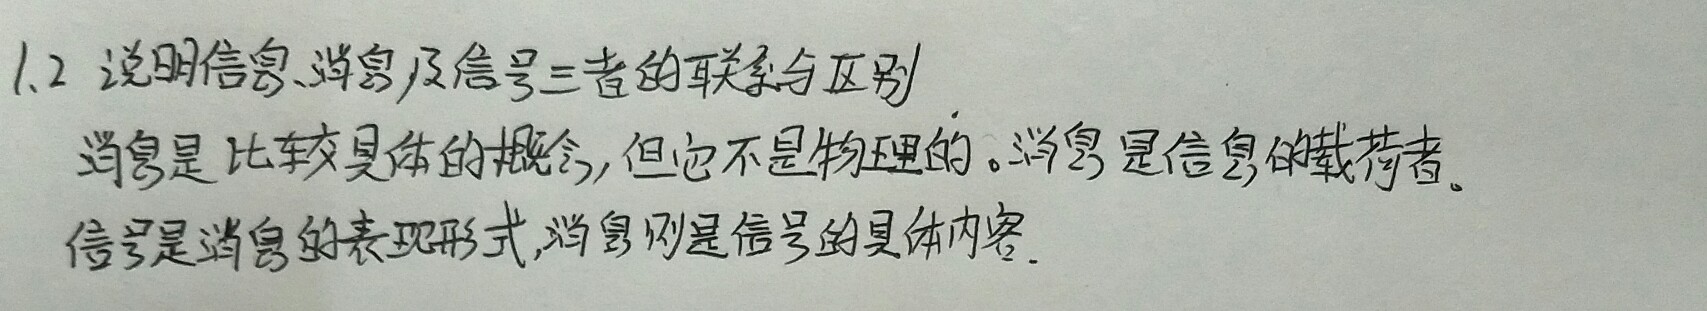 1.2 说明信息、消息及信号三者的联系与区别
消息是比较具体的概念,但它不是物理的。消息是信息的载荷者。
信号是消息的表现形式,消息则是信号的具体内容.